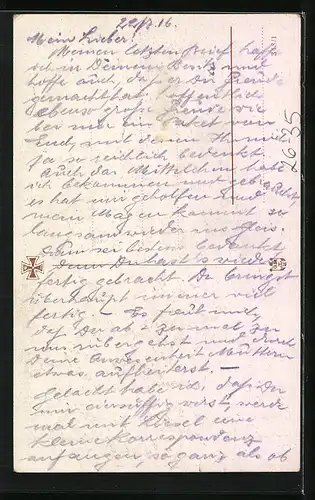 22/7.16.
Mein Lieber!
Meinen letzten Brief hoffe
ich in Deinem Besitz und
hoffe auch, daß er Dir Freude
gemacht hat, hoffentlich
ebenso große Freude wie
bei mir ein Paket von
Euch, mit denen Ihr mich
ja so reichlich bedenket.
Auch das Mittelchen hab
ich bekommen und
es hat mir geholfen. Und
mein Magen kommt so
langsam wieder ins Gleis.
Dann sei bestens bedankt
denn Du hast's wieder
fertig gebracht. Du bringst
überhaupt immer viel
fertig. – Es freut mich,
daß Du ab & zu mal zu
uns rübergehst und durch
Deine Anwesenheit Muttern
etwas aufheiterst. –
Gelacht habe ich, daß Du
nun wirst, werde
mal mit Liesel eine
kleine Korrespondenz
anfangen, so ganz als ob
2635